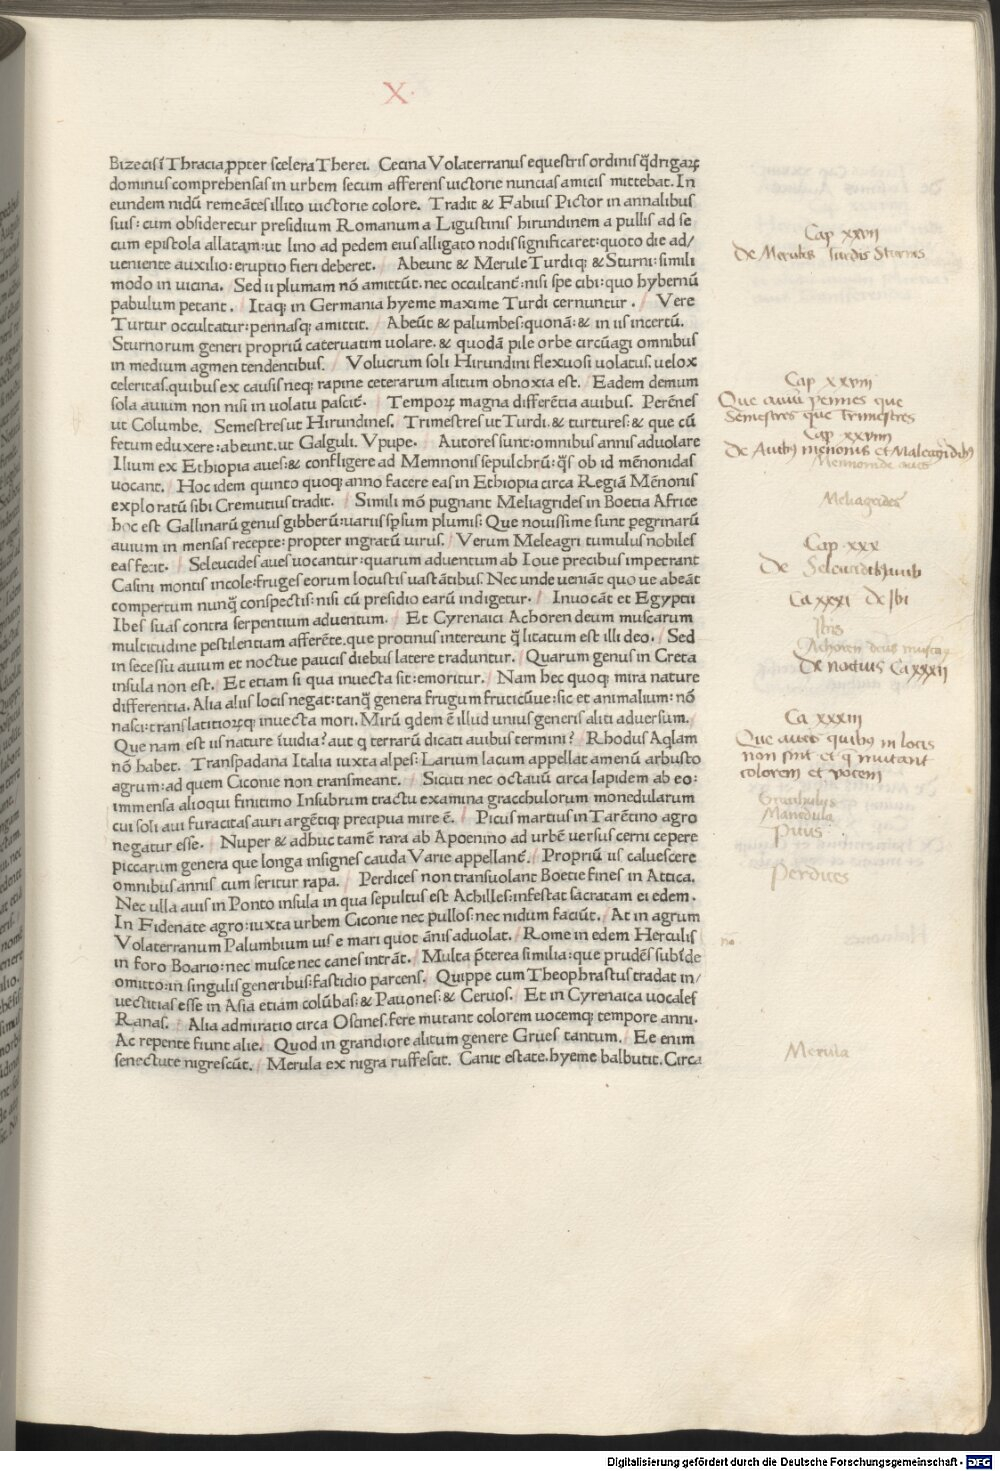 X·
Bizecis ī Thracia ꝓpter scelera Therei. Cecina Volaterranus equestris ordinis q̄drigaꝝ
dominus comprehensas in urbem secum afferens uictorie nuncias amicis mittebat. In
eundem nidū remeātes illito uictorie colore. Tradit & Fabius Pictor in annalibus
suis: cum obsideretur presidium Romanum a Ligustinis hirundinem a pullis ad se
cum epistola allatam: ut lino ad pedem eius alligato nodis significaret: quoto die ad/
ueniente auxilio: eruptio fieri deberet. / Abeunt & Merule Turdiq; & Sturni: simili
modo in uicina. / Sed ii plumam nō amittūt. nec occultant̄: nisi spe cibi: quo hybernū
pabulum petant. / Itaq; in Germania hyeme maxime Turdi cernuntur. / Vere
Turtur occultatur: pennasq; amittit. / Abeūt & palumbes: quonā: & in iis incertū.
Sturnorum generi propriū cateruatim uolare. & quodā pile orbe circūagi omnibus
in medium agmen tendentibus. / Volucrum soli Hirundini flexuosi uolatus. uelox
celeritas. quibus ex causis neq; rapine ceterarum alitum obnoxia est. / Eadem demum
sola auium non nisi in uolatu pascit̄. / Tempoꝝ magna differētia auibus. Perēnes
ut Columbe. Semestres ut Hirundines. / Trimestres ut Turdi. & turtures: & que cū
fetum eduxere: abeunt. ut Galguli. Vpupe. / Autores sunt: omnibus annis aduolare
Ilium ex Ethiopia aues: & confligere ad Memnonis sepulchrū: q̄s ob id mēnonidas
uocant. / Hoc idem quinto quoq; anno facere eas in Ethiopia circa Regiā Mēnonis
exploratū sibi Cremutius tradit. / Simili mō pugnant Meliagrides in Boetia Africe
hoc est Gallinarū genus gibberū: uariis sꝑsum plumis: Que nouissime sunt ꝑegrinarū
auium in mensas recepte: propter ingratū uirus. / Verum Meleagri tumulus nobiles
eas fecit. / Seleucides aues uocantur: quarum aduentum ab Ioue precibus impetrant
Casini montis incole: fruges eorum locustis uastātibus. Nec unde ueniāt quo ue abeāt
compertum nunq̄ conspectis: nisi cū presidio earū indigetur. / Inuocāt et Egyptii
Ibes suas contra serpentium aduentum. / Et Cyrenaici Achoren deum muscarum
multitudine pestilentiam afferēte. que protinus intereunt q̄ litatum est illi deo. / Sed
in secessu auium et noctue paucis diebus latere traduntur. / Quarum genus in Creta
insula non est. / Et etiam si qua inuecta sit: emoritur. / Nam hec quoq; mira nature
differentia. Alia aliis locis negat: tanq̄ genera frugum fruticūue: sic et animalium: nō
nasci: translatitioꝝq; inuecta mori. Mirū q̄dem ē illud unius generis aliti aduersum. /
Que nam est iis nature īuidia? aut q terrarū dicati auibus termini? / Rhodus Aq̄lam
nō habet. Transpadana Italia iuxta alpes: Larium lacum appellat amenū arbusto
agrum: ad quem Ciconie non transmeant. / Sicuti nec octauū circa lapidem ab eo:
immensa alioqui finitimo Insubrum tractu examina gracchulorum monedularum
cui soli aui furacitas auri argētiq; precipua mire ē. / Picus martius in Tarētino agro
negatur esse. / Nuper & adhuc tamē rara ab Apoenino ad urbē uersus cerni cepere
piccarum genera que longa insignes cauda Varie appellant̄. / Propriū iis caluescere
omnibus annis cum seritur rapa. / Perdices non transuolant Boetie fines in Attica.
Nec ulla auis in Ponto insula in qua sepultus est Achilles: infestat sacratam ei edem.
In Fidenate agro: iuxta urbem Ciconie nec pullos: nec nidum faciūt. / At in agrum
Volaterranum Palumbium uis e mari quot ānis aduolat. / Rome in edem Herculis
in foro Boario: nec musce nec canes intrāt. / Multa p̄terea similia: que prudēs subīde
omitto: in singulis generibus: fastidio parcens. / Quippe cum Theophrastus tradat in/
uectitias esse in Asia etiam colūbas: & Pauones: & Ceruos. / Et in Cyrenaica uocales
Ranas. / Alia admiratio circa Oscines. fere mutant colorem uocemq; tempore anni.
Ac repente fiunt alie. / Quod in grandiore alitum genere Grues tantum. / Ee enim
senectute nigrescūt. / Merula ex nigra ruffescit. Canit estate. hyeme balbutit. Circa
Cap xxvii
De Merulis Turdis Sturnis
Cap xxviii
Que auiū pennes que
Semestres que Trimestres
Cap xxviiii
De Auibus menonis et Maleagridibus
Mennonide aues
Meliagrides
Cap xxx
De Seleucidibus auib
Ca xxxi de Ibi
Ibis
Achoren deus muscaꝝ
De noctuis Ca xxxii
Ca xxxiii
Que aues quibus in locis
non sint et q̄ mutant
colorem et vocem
Grachulus
Manedula
Picus
Perdices
no
Merula
Digitalisierung gefördert durch die Deutsche Forschungsgemeinschaft - DFG